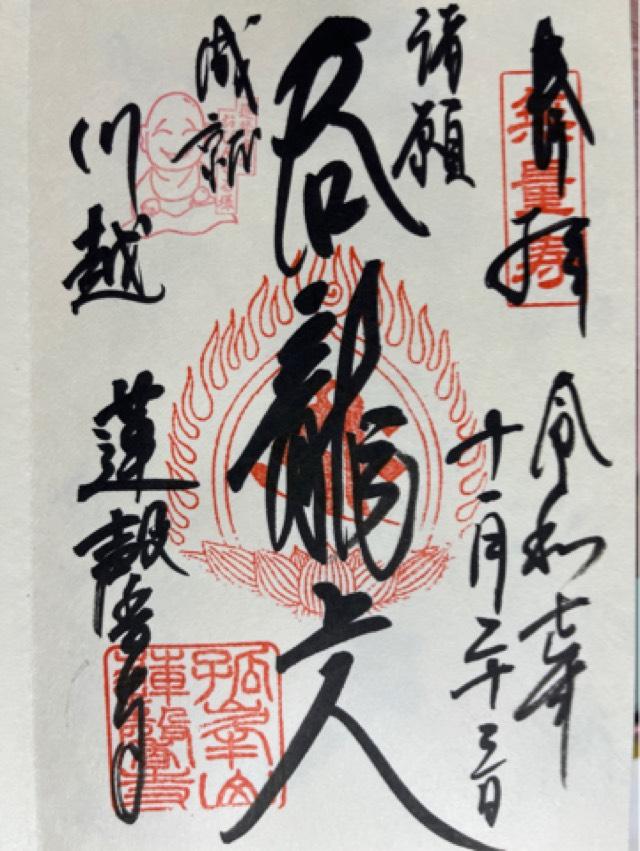 奉拝
無量寿
令和七年
十一月二十三日
諸願
呑龍上人
成就
川越
蓮馨寺
孤峯山
蓮馨寺